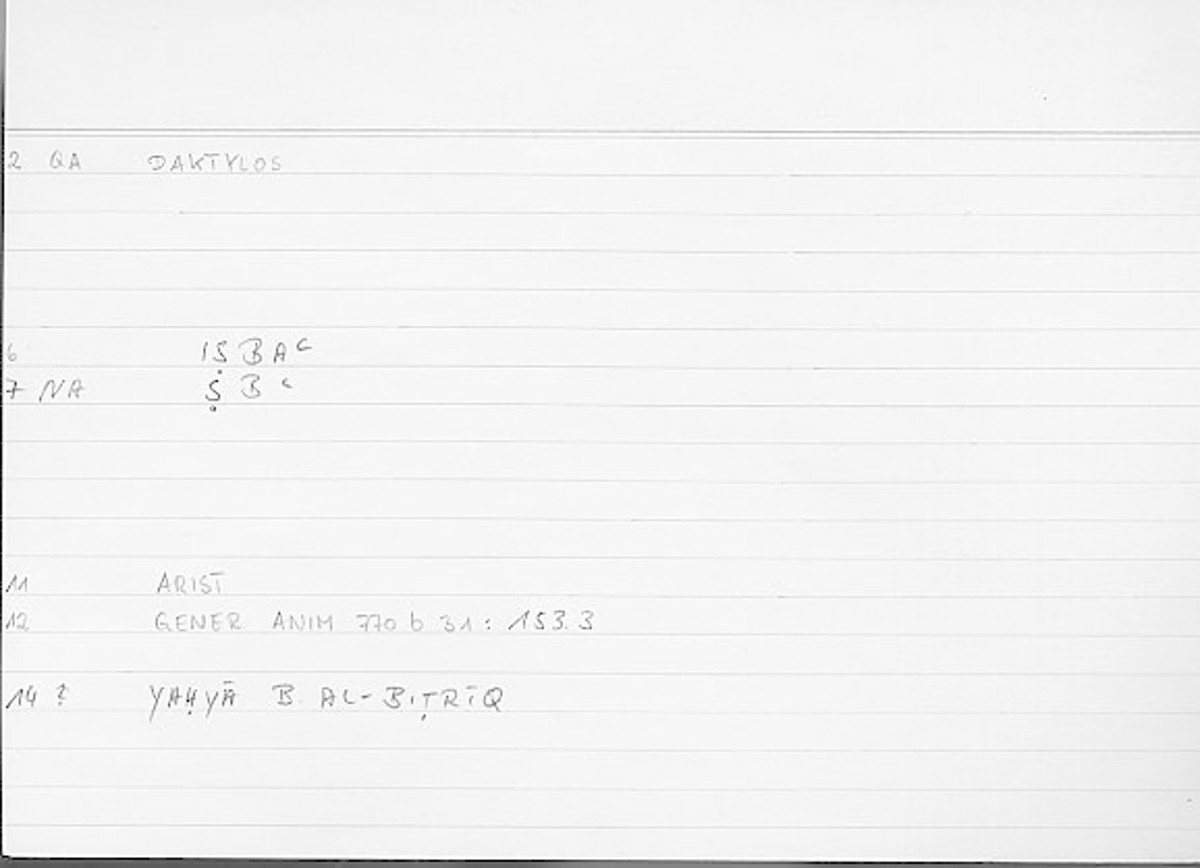 2 QA DAKTYLOS
6 IṢBAʿ
7 NA ṢBʿ
11 ARIST
12 GENER ANIM 770 b 31: 153.3
14 ? YAḤYĀ B. AL-BIṬRĪQ